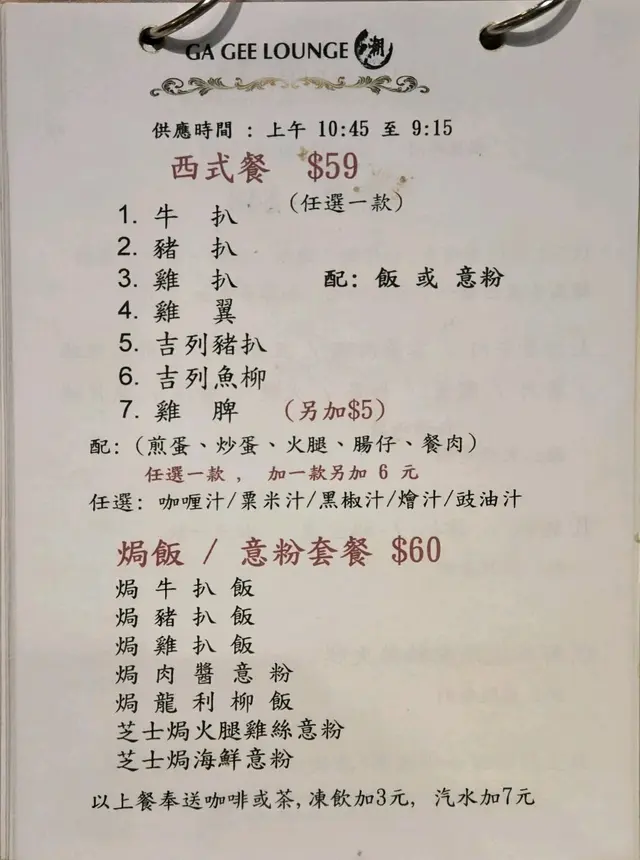 GA GEE LOUNGE 潮
供應時間 : 上午 10:45 至 9:15
西式餐 $59
(任選一款)
1. 牛 扒
2. 豬 扒
3. 雞 扒 配: 飯 或 意粉
4. 雞 翼
5. 吉列豬扒
6. 吉列魚柳
7. 雞 脾 (另加$5)
配: (煎蛋、炒蛋、火腿、腸仔、餐肉)
任選一款 , 加一款另加 6 元
任選: 咖喱汁/粟米汁/黑椒汁/燴汁/豉油汁
焗飯 / 意粉套餐 $60
焗 牛 扒 飯
焗 豬 扒 飯
焗 雞 扒 飯
焗 肉 醬 意 粉
焗 龍 利 柳 飯
芝士焗火腿雞絲意粉
芝士焗海鮮意粉
以上餐奉送咖啡或茶, 凍飲加3元, 汽水加7元